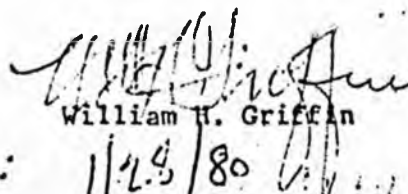 William H. Griffin
: 1/28/80